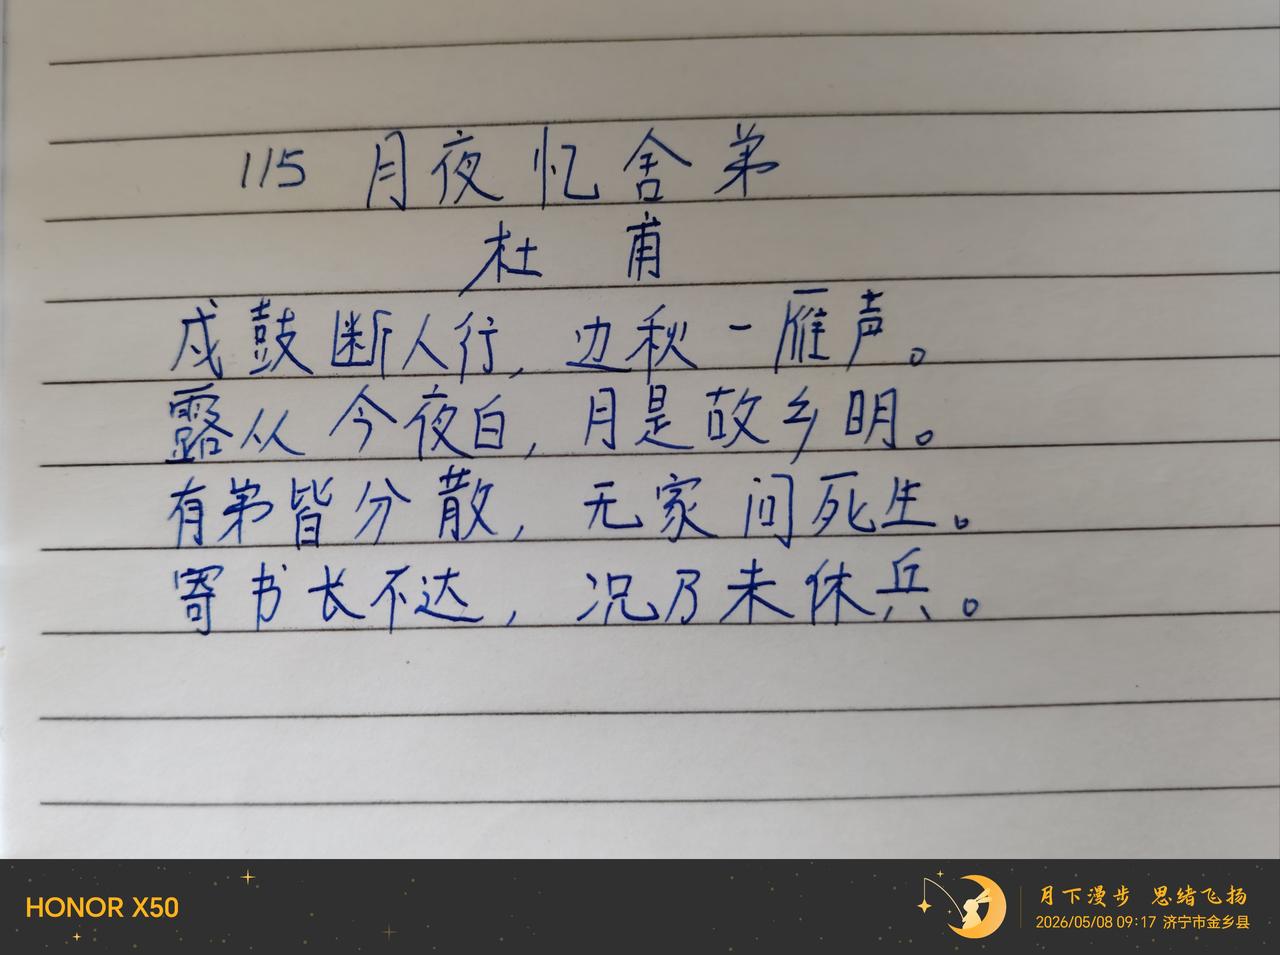 115 月夜忆舍弟
杜甫
戍鼓断人行，边秋一雁声。
露从今夜白，月是故乡明。
有弟皆分散，无家问死生。
寄书长不达，况乃未休兵。
HONOR X50
月下漫步 思绪飞扬
2026/05/08 09:17 济宁市金乡县